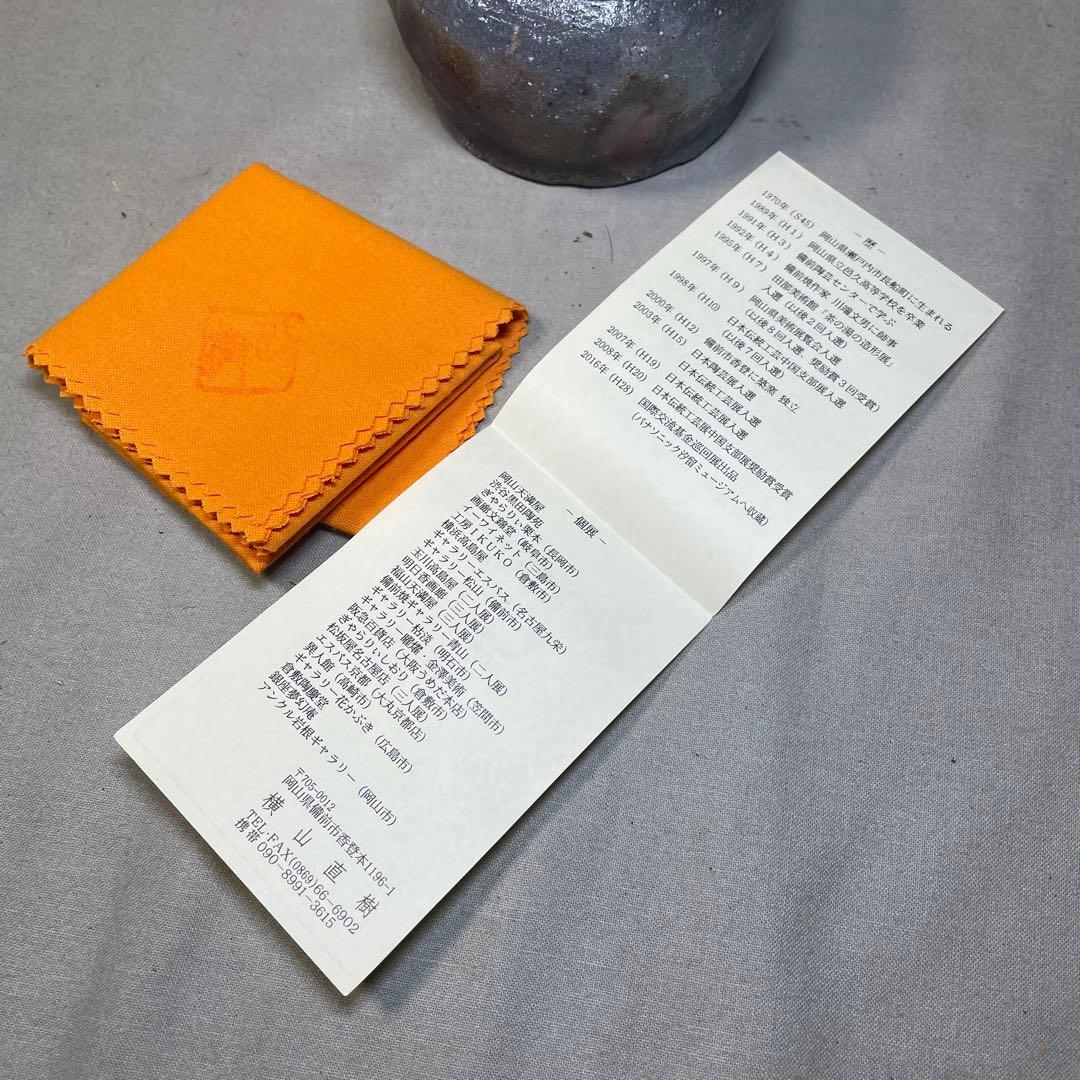 －歴－
1970年（S45） 岡山県瀬戸内市長船町に生まれる
1989年（H1） 岡山県立邑久高等学校を卒業
1991年（H3） 備前陶芸センターで学ぶ
1992年（H4） 備前焼作家 川浦文男に師事
1995年（H7） 田部美術館「茶の湯の造形展」
入選（以後2回入選）
1997年（H9） 岡山県美術展覧会入選
（以後8回入選、奨励賞3回受賞）
1998年（H10） 日本伝統工芸中国支部展入選
（以後7回入選）
2000年（H12） 備前市香登に築窯 独立
2003年（H15） 日本陶芸展入選
日本伝統工芸展入選
2007年（H19） 日本伝統工芸展入選
2008年（H20） 日本伝統工芸展中国支部展奨励賞受賞
2016年（H28） 国際交流基金巡回展出品
（パナソニック汐留ミュージアムへ収蔵）
－個展－
岡山天満屋
渋谷黒田陶苑
ぎゃらりい栗本（長岡市）
画廊文錦堂（岐阜市）
イーワイネット（三島市）
工房IKUKO（倉敷市）
横浜高島屋
ギャラリーエスパス（名古屋九栄）
ギャラリー松山（備前市）
玉川高島屋（二人展）
明日香画廊（三人展）
福山天満屋（三人展）
備前焼ギャラリー青山（二人展）
ギャラリー枯淡（明石市）
ギャラリー曜燿・金澤美術（笠間市）
阪急百貨店（大阪うめだ本店）
ぎゃらりぃしおり（倉敷市）
松坂屋名古屋店（三人展）
エスパス京都（大丸京都店）
異人館（高崎市）
ギャラリー花かぶき（広島市）
倉敷陶慶堂
銀座夢幻庵
アンクル岩根ギャラリー（岡山市）
〒705-0012
岡山県備前市香登本1196-1
横山直樹
TEL・FAX(0869)66-6902
携帯 090-8991-3615